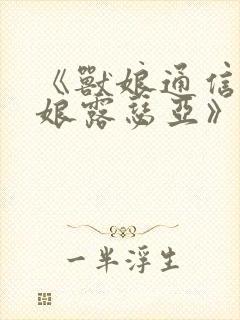 《獸娘通信
娘露瑟亞》
一半浮生